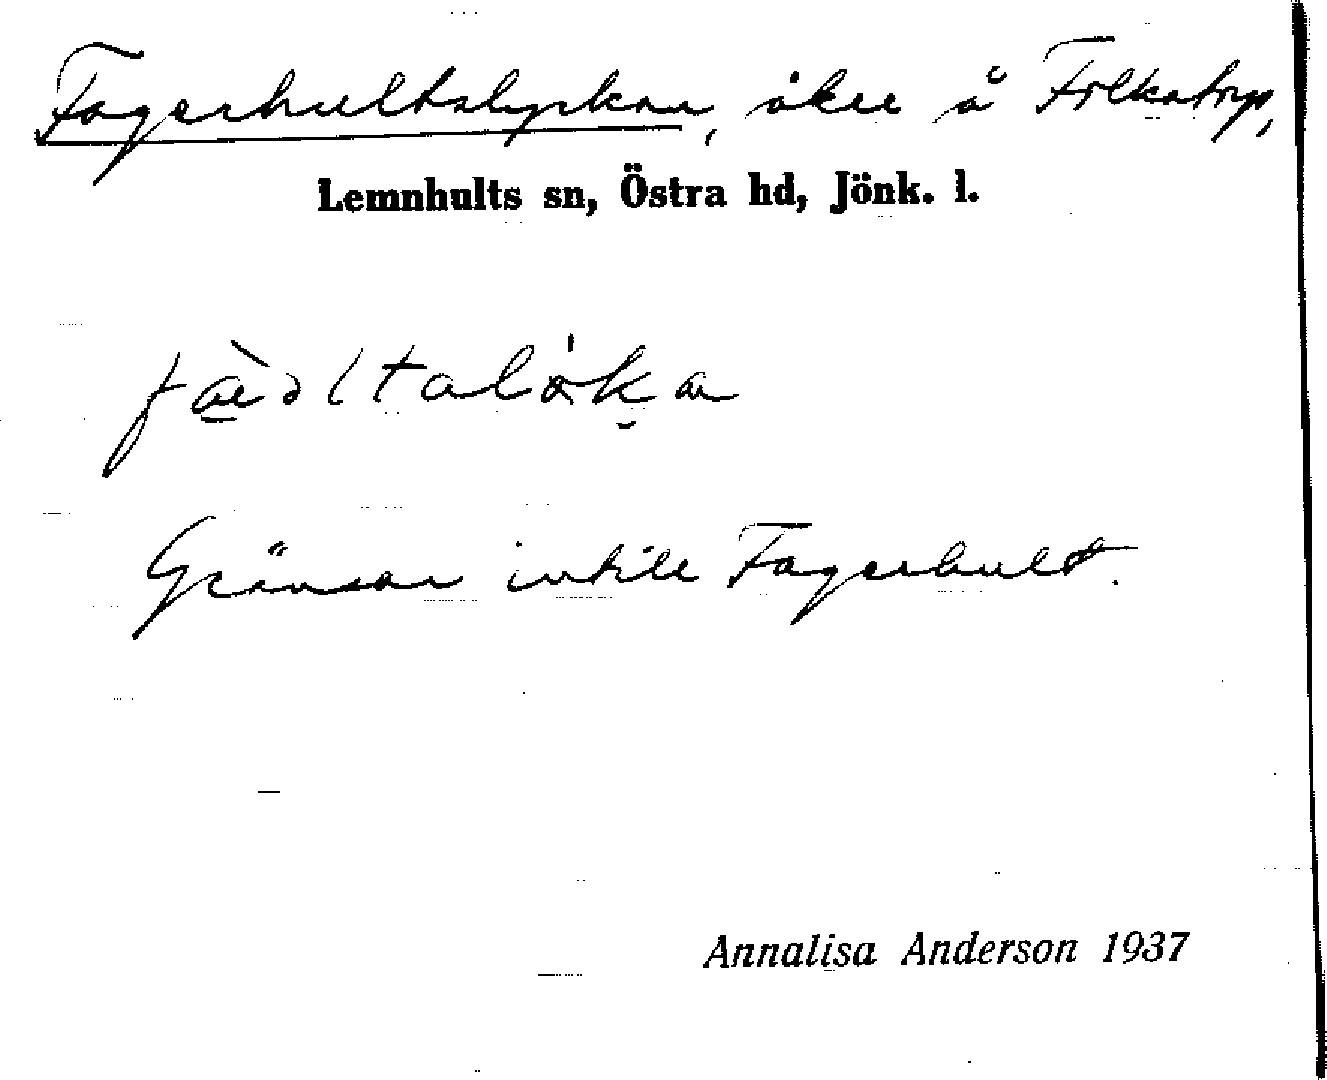 Fagerhultslyckan, åker å Folkatorp,
Lemnhults sn, Östra hd, Jönk. l.
Gränsar intill Fagerhult.
Annalisa Anderson 1937